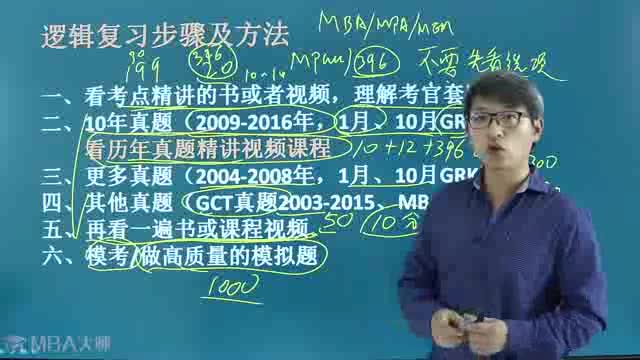 MBA/MPA/MEM
逻辑复习步骤及方法
199 396 20 10-14 MPAcc/396 不需
一、看考点精讲的书或者视频，理解考官套
二、10年真题（2009-2016年，1月、10月GR
看历年真题精讲视频课程 10+12+396
三、更多真题（2004-2008年，1月、10月GRK
四、其他真题（GCT真题2003-2015、MB
五、再看一遍书或课程视频 50 10分
六、模考/做高质量的模拟题
1000
MBA大师